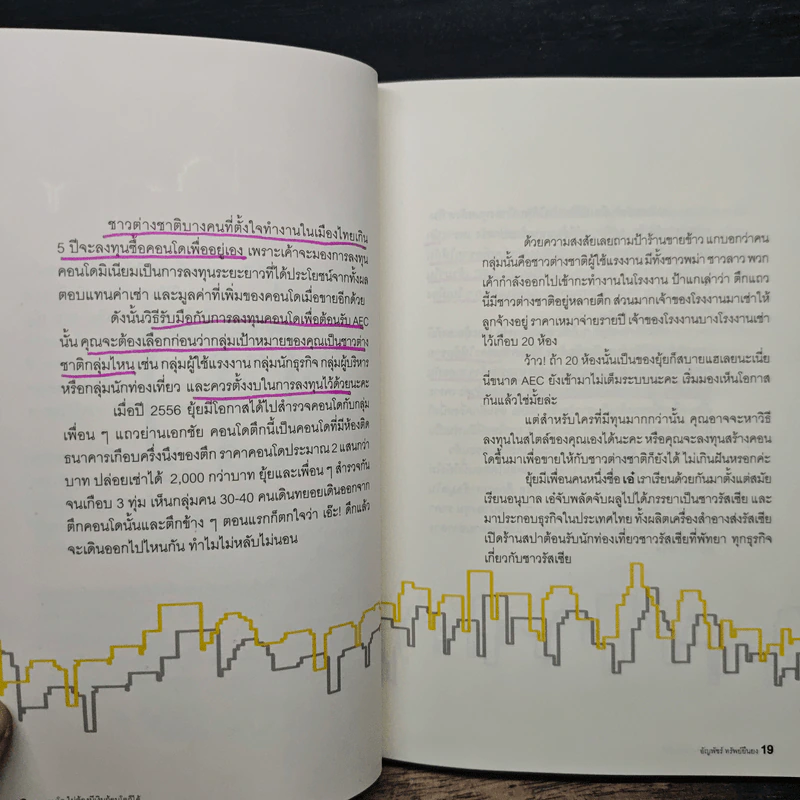 ชาวต่างชาติบางคนที่ตั้งใจทำงานในเมืองไทยเกิน
5 ปีจะลงทุนซื้อคอนโดเพื่ออยู่เอง เพราะเค้าจะมองการลงทุน
คอนโดมิเนียมเป็นการลงทุนระยะยาวที่ได้ประโยชน์จากทั้งผล
ตอบแทนค่าเช่า และมูลค่าที่เพิ่มของคอนโดเมื่อขายอีกด้วย
ดังนั้นวิธีรับมือกับการลงทุนคอนโดเพื่อต้อนรับ AEC
นั้น คุณจะต้องเลือกก่อนว่ากลุ่มเป้าหมายของคุณเป็นชาวต่าง
ชาติกลุ่มไหน เช่น กลุ่มผู้ใช้แรงงาน กลุ่มนักธุรกิจ กลุ่มผู้บริหาร
หรือกลุ่มนักท่องเที่ยว และควรตั้งงบในการลงทุนไว้ด้วยนะคะ
เมื่อปี 2556 ยุ้ยมีโอกาสได้ไปสำรวจคอนโดกับกลุ่ม
เพื่อน ๆ แถวย่านเอกชัย คอนโดตึกนี้เป็นคอนโดที่มีห้องติด
ธนาคารเกือบครึ่งนึงของตึก ราคาคอนโดประมาณ 2 แสนกว่า
บาท ปล่อยเช่าได้ 2,000 กว่าบาท ยุ้ยและเพื่อน ๆ สำรวจกัน
จนเกือบ 3 ทุ่ม เห็นกลุ่มคน 30-40 คนเดินทยอยเดินออกจาก
ตึกคอนโดนั้นและตึกข้าง ๆ ตอนแรกก็ตกใจว่า เอ๊ะ! ดึกแล้ว
จะเดินออกไปไหนกัน ทำไมไม่หลับไม่นอน
ด้วยความสงสัยเลยถามป้าร้านขายข้าว แกบอกว่าคน
กลุ่มนั้นคือชาวต่างชาติผู้ใช้แรงงาน มีทั้งชาวพม่า ชาวลาว พวก
เค้ากำลังออกไปเข้ากะทำงานในโรงงาน ป้าแกเล่าว่า ตึกแถว
นี้มีชาวต่างชาติอยู่หลายตึก ส่วนมากเจ้าของโรงงานมาเช่าให้
ลูกจ้างอยู่ ราคาเหมาจ่ายรายปี เจ้าของโรงงานบางโรงงานเช่า
ไว้เกือบ 20 ห้อง
ว้าว! ถ้า 20 ห้องนั้นเป็นของยุ้ยก็สบายแฮเลยนะเนี่ย
นี่ขนาด AEC ยังเข้ามาไม่เต็มระบบนะคะ เริ่มมองเห็นโอกาส
กันแล้วใช่มั้ยล่ะ
แต่สำหรับใครที่มีทุนมากกว่านั้น คุณอาจจะหาวิธี
ลงทุนในสไตล์ของคุณเองได้นะคะ หรือคุณจะลงทุนสร้างคอน
โดขึ้นมาเพื่อขายให้กับชาวต่างชาติก็ยังได้ ไม่เกินฝันหรอกค่ะ
ยุ้ยมีเพื่อนคนหนึ่งชื่อ เอ๋ เราเรียนด้วยกันมาตั้งแต่สมัย
เรียนอนุบาล เอ๋จับพลัดจับผลูไปได้ภรรยาเป็นชาวรัสเซีย และ
มาประกอบธุรกิจในประเทศไทย ทั้งผลิตเครื่องสำอางส่งรัสเซีย
เปิดร้านสปาต้อนรับนักท่องเที่ยวชาวรัสเซียที่พัทยา ทุกธุรกิจ
เกี่ยวกับชาวรัสเซีย
อัญพัชร์ ทรัพย์ยืนยง 19